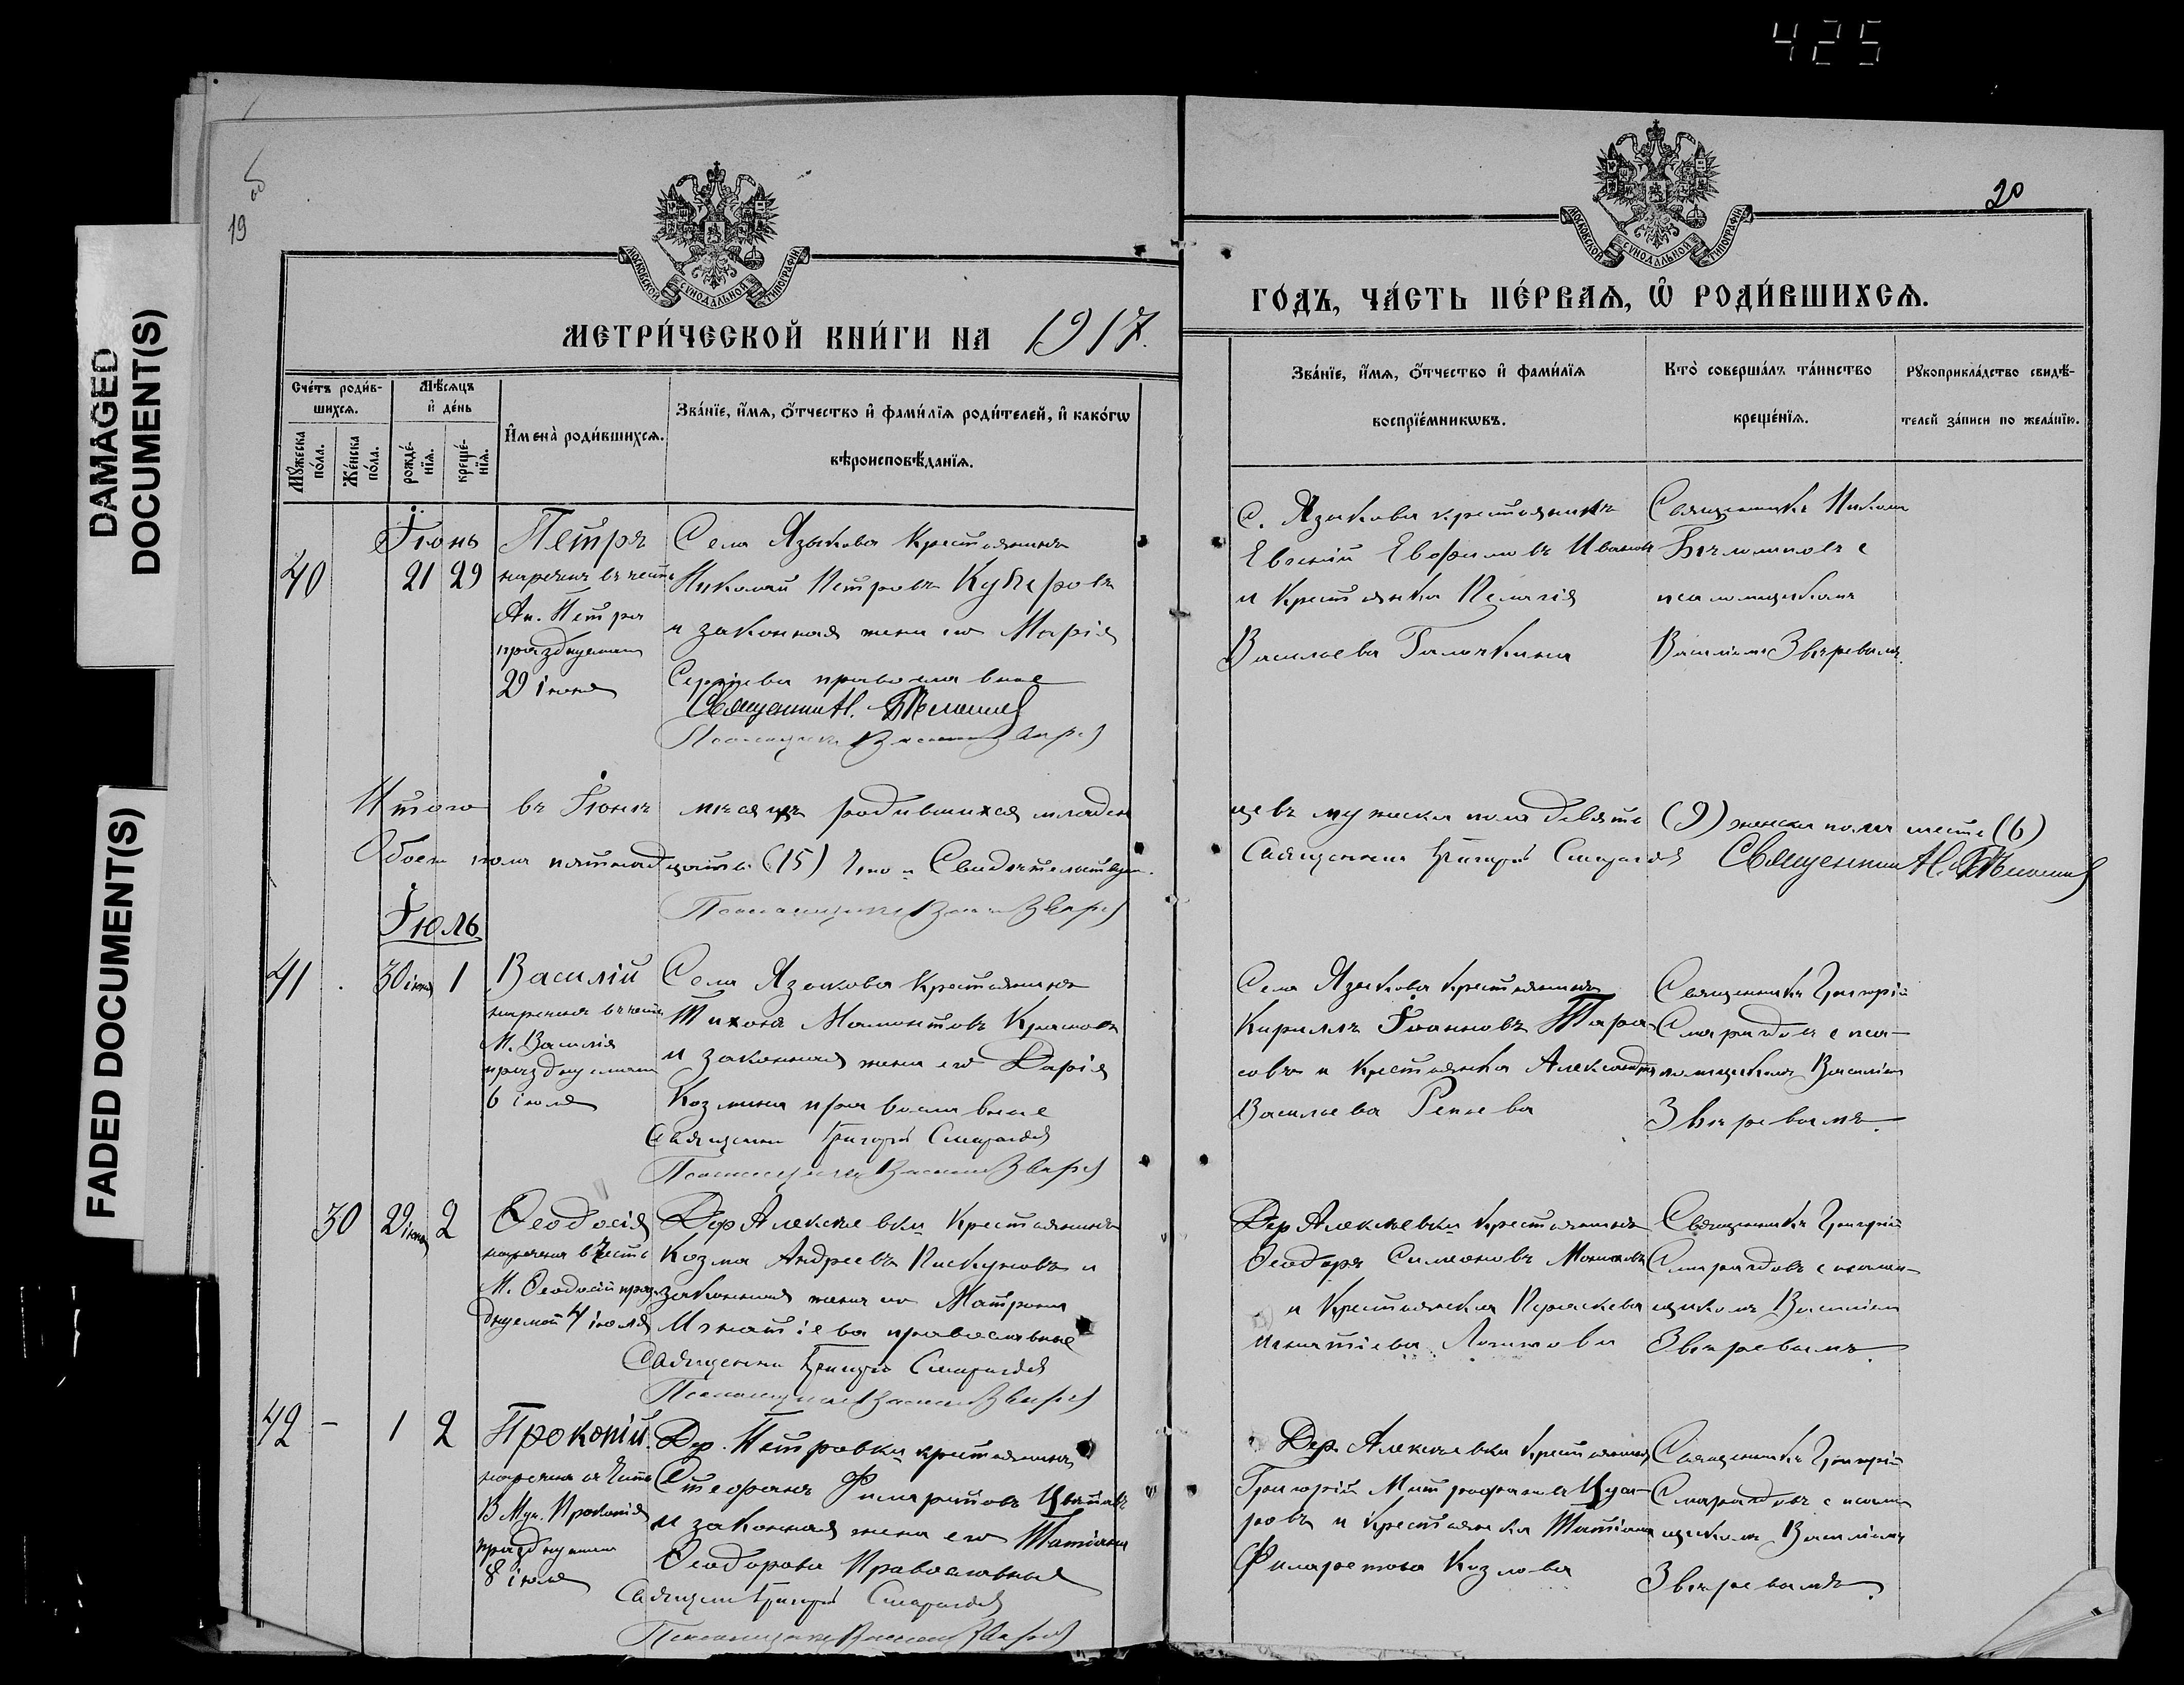 425
DAMAGED
DOCUMENT(S)
FADED DOCUMENT(S)
19
МОСКОВСКОЙ СѴНОДАЛЬНОЙ ТИПОГРАФІИ
МЕТРИ́ЧЕСКОЙ КНИ́ГИ НА 1917.
Сче́тъ роди́в-
шихсѧ.
Мѣ́сѧцъ
и҆ де́нь
Мꙋ́жеска
по́ла.
Же́нска
по́ла.
рожде́-
нїѧ.
креще́-
нїѧ.
И҆мена̀ роди́вшихсѧ.
Зва́нїе, и҆́мѧ, ѻ҆́тчество и҆ фами́лїѧ роди́телей, и҆ како́гѡ
вѣроисповѣ́данїѧ.
Іюнь
40 21 29
Петръ
нареченъ въ честь
Ап. Петра
празднуемаго
29 іюня
Села Языкова крестьянинъ
Николай Петровъ Куваровъ
и законная жена его Марія
Сергіева православные
Священникъ Н.
Псаломщикъ
Итого въ Іюнѣ мѣсяцѣ родившихся младен
Обоего пола пятнадцать (15) Что и Свидѣтельствуемъ.
Псаломщикъ Василій Звѣревъ
Іюль
41 30 іюня 1
Василій
нареченъ въ честь
М. Василія
празднуемаго
6 іюля
Села Языкова крестьянинъ
Тихонъ Мамонтовъ
и законная жена его Дарія
Козмина православные
Священникъ Григорій Смарагдовъ
Псаломщикъ Василій Звѣревъ
30 29 іюня 2
Ѳеодосія
наречена въ честь
М. Ѳеодосіи праз-
днуемой 4 іюля
Дер Алексѣевки крестьянинъ
Козма Андреевъ Пискуновъ и
законная жена его Матрона
Игнатіева православные
Священникъ Григорій Смарагдовъ
Псаломщикъ Василій Звѣревъ
42 – 1 2
Прокопій
нареченъ въ честь
В. Муч. Прокопія
празднуемаго
8 іюля
Дер. Петровки крестьянинъ
Стефанъ Филаретовъ
и законная жена его Татіана
Ѳеодорова Православные
Священникъ Григорій Смарагдовъ
Псаломщикъ Василій Звѣревъ
20
МОСКОВСКОЙ СѴНОДАЛЬНОЙ ТИПОГРАФІИ
ГО́ДЪ, ЧА́СТЬ ПЕ́РВАѦ, Ѽ РОДИ́ВШИХСѦ.
Зва́нїе, и҆́мѧ, ѻ҆́тчество и҆ фами́лїѧ
воспрїе́мникѡвъ.
Кто̀ соверша́лъ та́инство
креще́нїѧ.
Рꙋкоприкла́дство свидѣ́-
телей за́писи по жела́нїю.
С. Языкова крестьянинъ
Евсевій Евфимовъ
и Крестьянка Пелагія
Васильева Галочкина
Священникъ Николай
съ
псаломщикомъ
Василіемъ Звѣревымъ.
цевъ мужеска пола девять (9) женска пола шесть (6)
Священникъ Григорій Смарагдовъ Священникъ Н.
Села Языкова крестьянинъ
Кириллъ Іоанновъ Тара-
совъ и крестьянка Александра
Васильева Репьева
Священникъ Григорій
Смарагдовъ с пса-
ломщикомъ Василіемъ
Звѣревымъ.
Дер Алексѣевки крестьянинъ
Ѳеодоръ Симеоновъ
и Крестьянка Параскева
Игнатіева
Священникъ Григорій
Смарагдовъ с псалом-
щикомъ Василіемъ
Звѣревымъ.
Дер. Алексѣевки крестьянинъ
Григорій Митрофановъ
и крестьянка Татіана
Филаретова Козлова
Священникъ Григорій
Смарагдовъ с псалом
щикомъ Василіемъ
Звѣревымъ.